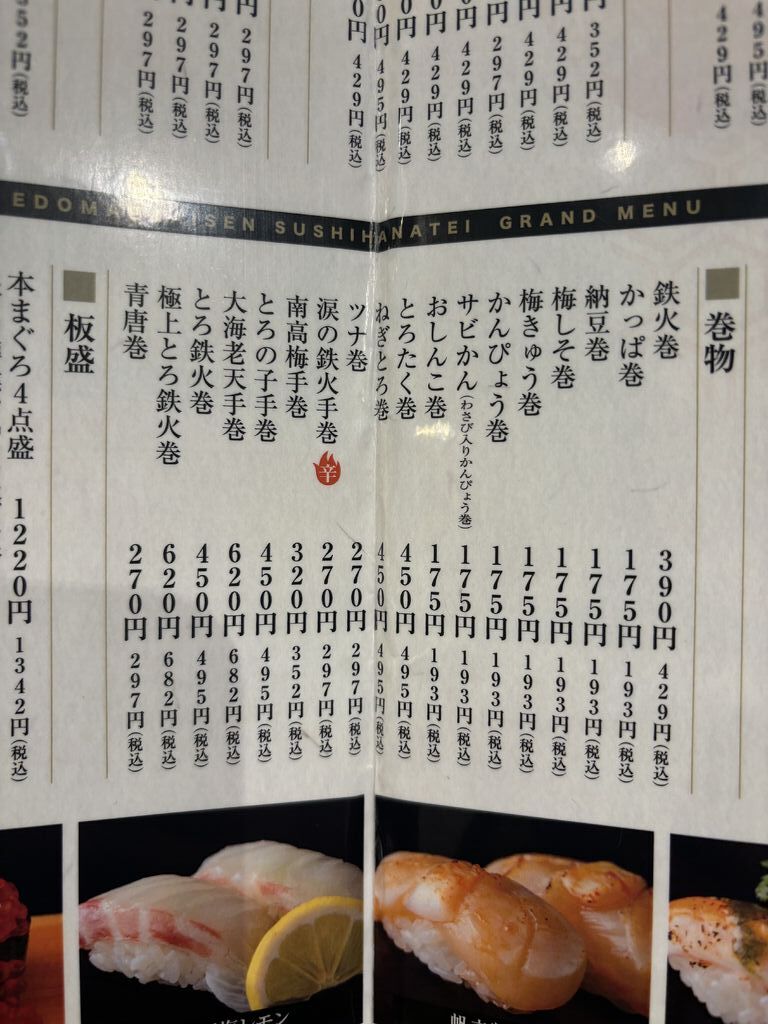 495円(税込)
429円(税込)
352円(税込)
429円(税込)
429円(税込)
297円(税込)
429円(税込)
429円(税込)
429円(税込)
495円(税込)
429円(税込)
297円(税込)
297円(税込)
297円(税込)
297円(税込)
352円(税込)
SUSHIHANATEI GRAND MENU
巻物
鉄火巻 390円 429円(税込)
かっぱ巻 175円 193円(税込)
納豆巻 175円 193円(税込)
梅しそ巻 175円 193円(税込)
梅きゅう巻 175円 193円(税込)
かんぴょう巻 175円 193円(税込)
サビかん(わさび入りかんぴょう巻) 175円 193円(税込)
おしんこ巻 175円 193円(税込)
とろたく巻 450円 495円(税込)
ねぎとろ巻 450円 495円(税込)
ツナ巻 270円 297円(税込)
涙の鉄火手巻 辛 270円 297円(税込)
南高梅手巻 320円 352円(税込)
とろの子手巻 450円 495円(税込)
大海老天手巻 620円 682円(税込)
とろ鉄火巻 450円 495円(税込)
極上とろ鉄火巻 620円 682円(税込)
青唐巻 270円 297円(税込)
板盛
本まぐろ4点盛 1220円 1342円(税込)
レモン